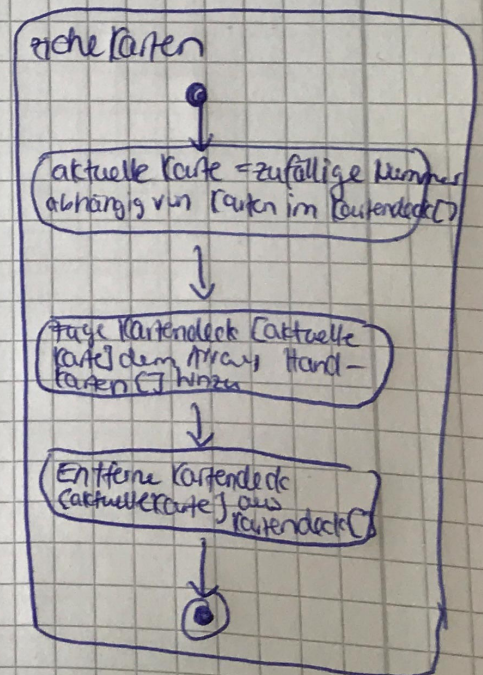 ziehe Karten
aktuelle Karte = zufällige Nummer
abhängig von Karten im Kartendeck[]
Füge Kartendeck [aktuelle
Karte] dem Array Hand-
karten [] hinzu
Entferne Kartendeck
[aktuelleKarte] aus
Kartendeck[]